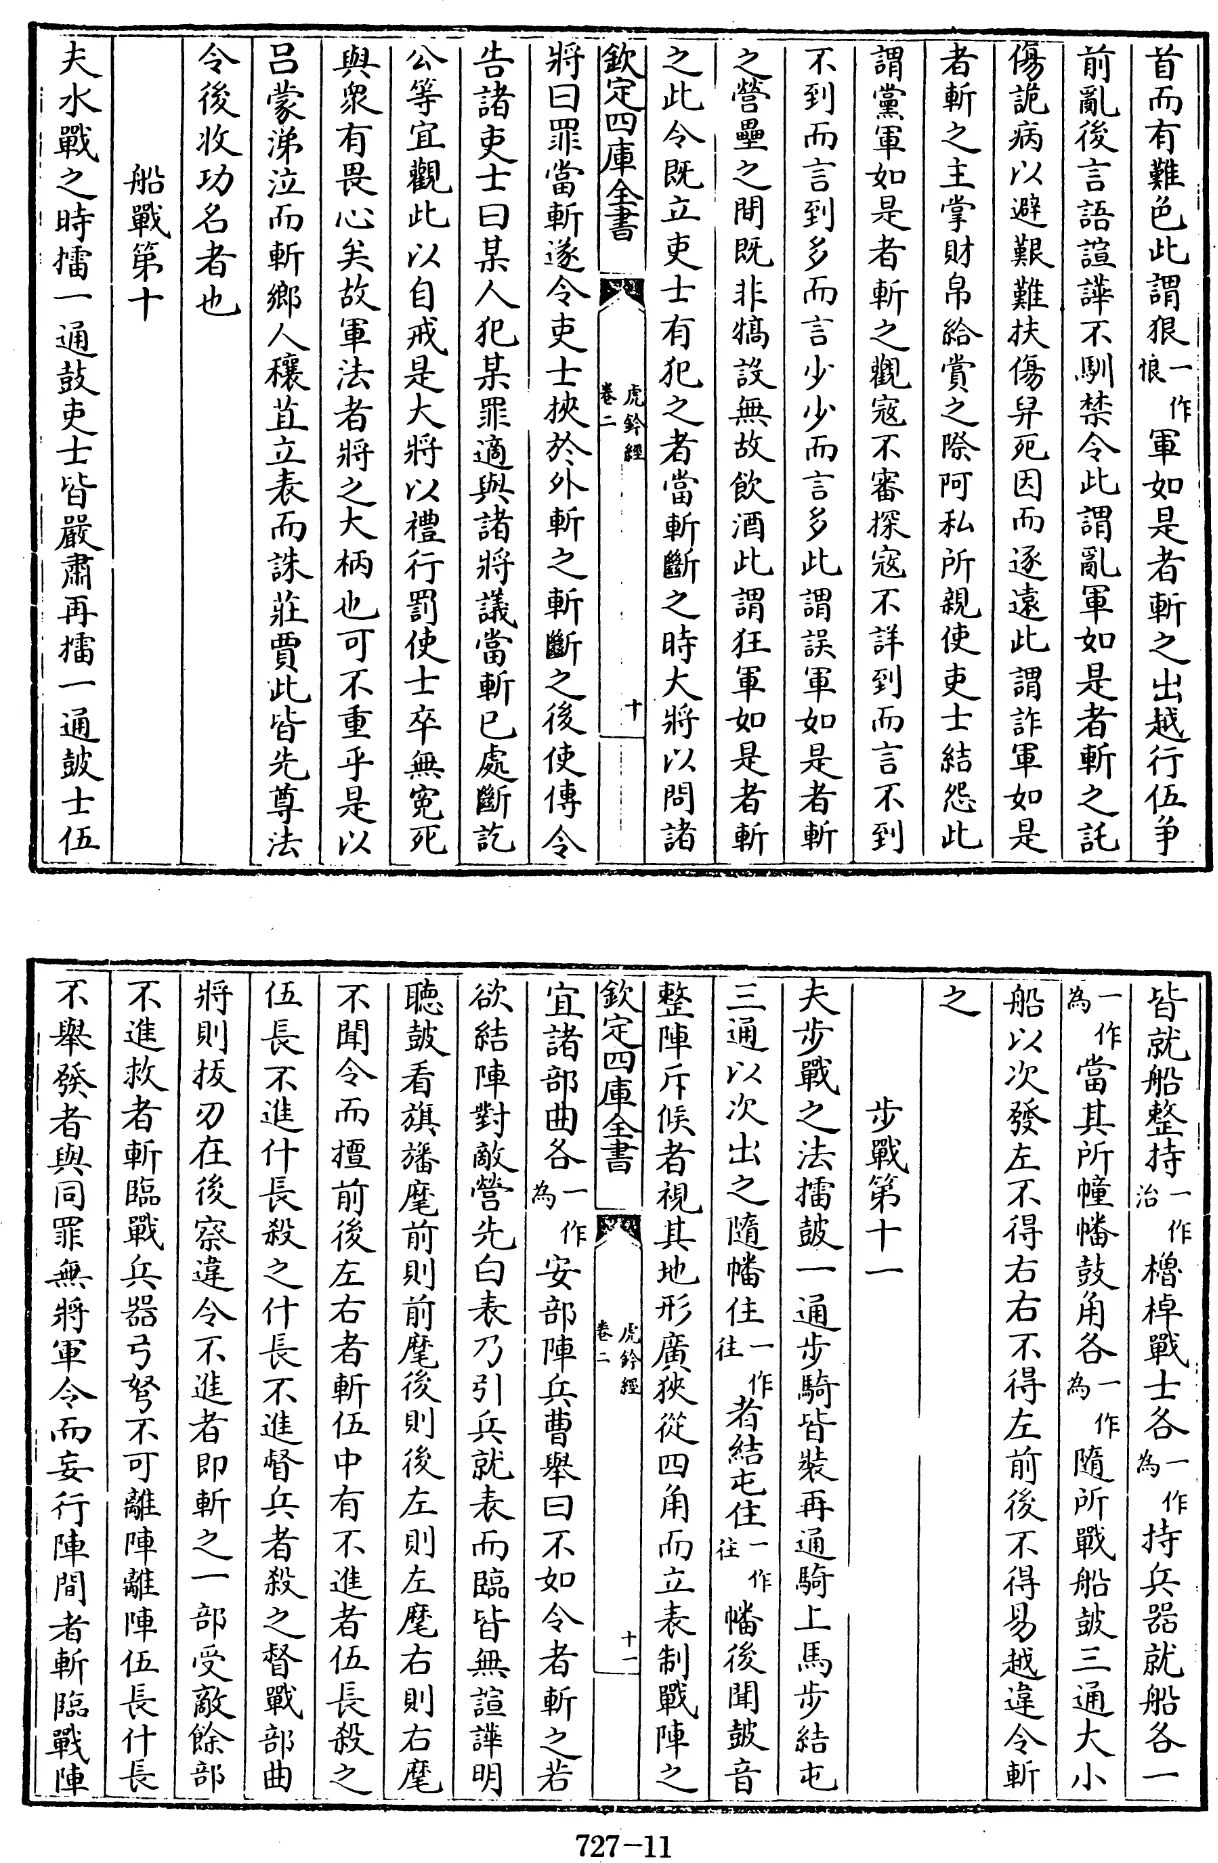 首而有難色此謂狠一作悢軍如是者斬之出越行伍爭
前亂後言語諠譁不馴禁令此謂亂軍如是者斬之託
傷詭病以避艱難扶傷舁死因而逐遠此謂詐軍如是
者斬之主掌財帛給賞之際阿私所親使吏士結怨此
謂黨軍如是者斬之觀寇不審探寇不詳到而言不到
不到而言到多而言少少而言多此謂誤軍如是者斬
之營壘之間既非犒設無故飲酒此謂狂軍如是者斬
之此令既立吏士有犯之者當斬斷之時大將以問諸
欽定四庫全書
虎鈐經
卷二
十
將曰罪當斬遂令吏士挾於外斬之斬斷之後使傳令
告諸吏士曰某人犯某罪適與諸將議當斬已處斷訖
公等宜觀此以自戒是大將以禮行罰使士卒無寃死
與衆有畏心矣故軍法者將之大柄也可不重乎是以
呂蒙涕泣而斬鄉人穰苴立表而誅莊賈此皆先尊法
令後收功名者也
船戰第十
夫水戰之時擂一通鼓吏士皆嚴肅再擂一通皷士伍
皆就船整持一作治櫓棹戰士各一作為持兵器就船各一
一作為當其所幢幡鼓角各一作為隨所戰船皷三通大小
船以次發左不得右右不得左前後不得易越違令斬
之
步戰第十一
夫步戰之法擂皷一通步騎皆裝再通騎上馬步結屯
三通以次出之隨幡住一作往者結屯住一作往幡後聞皷音
整陣斥候者視其地形廣狹從四角而立表制戰陣之
欽定四庫全書
虎鈐經
卷二
十一
宜諸部曲各一作為安部陣兵曹舉曰不如令者斬之若
欲結陣對敵營先白表乃引兵就表而臨皆無諠譁明
聽皷看旗旛麾前則前麾後則後左則左麾右則右麾
不聞令而擅前後左右者斬伍中有不進者伍長殺之
伍長不進什長殺之什長不進督兵者殺之督戰部曲
將則拔刃在後察違令不進者即斬之一部受敵餘部
不進救者斬臨戰兵器弓弩不可離陣離陣伍長什長
不舉發者與同罪無將軍令而妄行陣間者斬臨戰陣
727-11